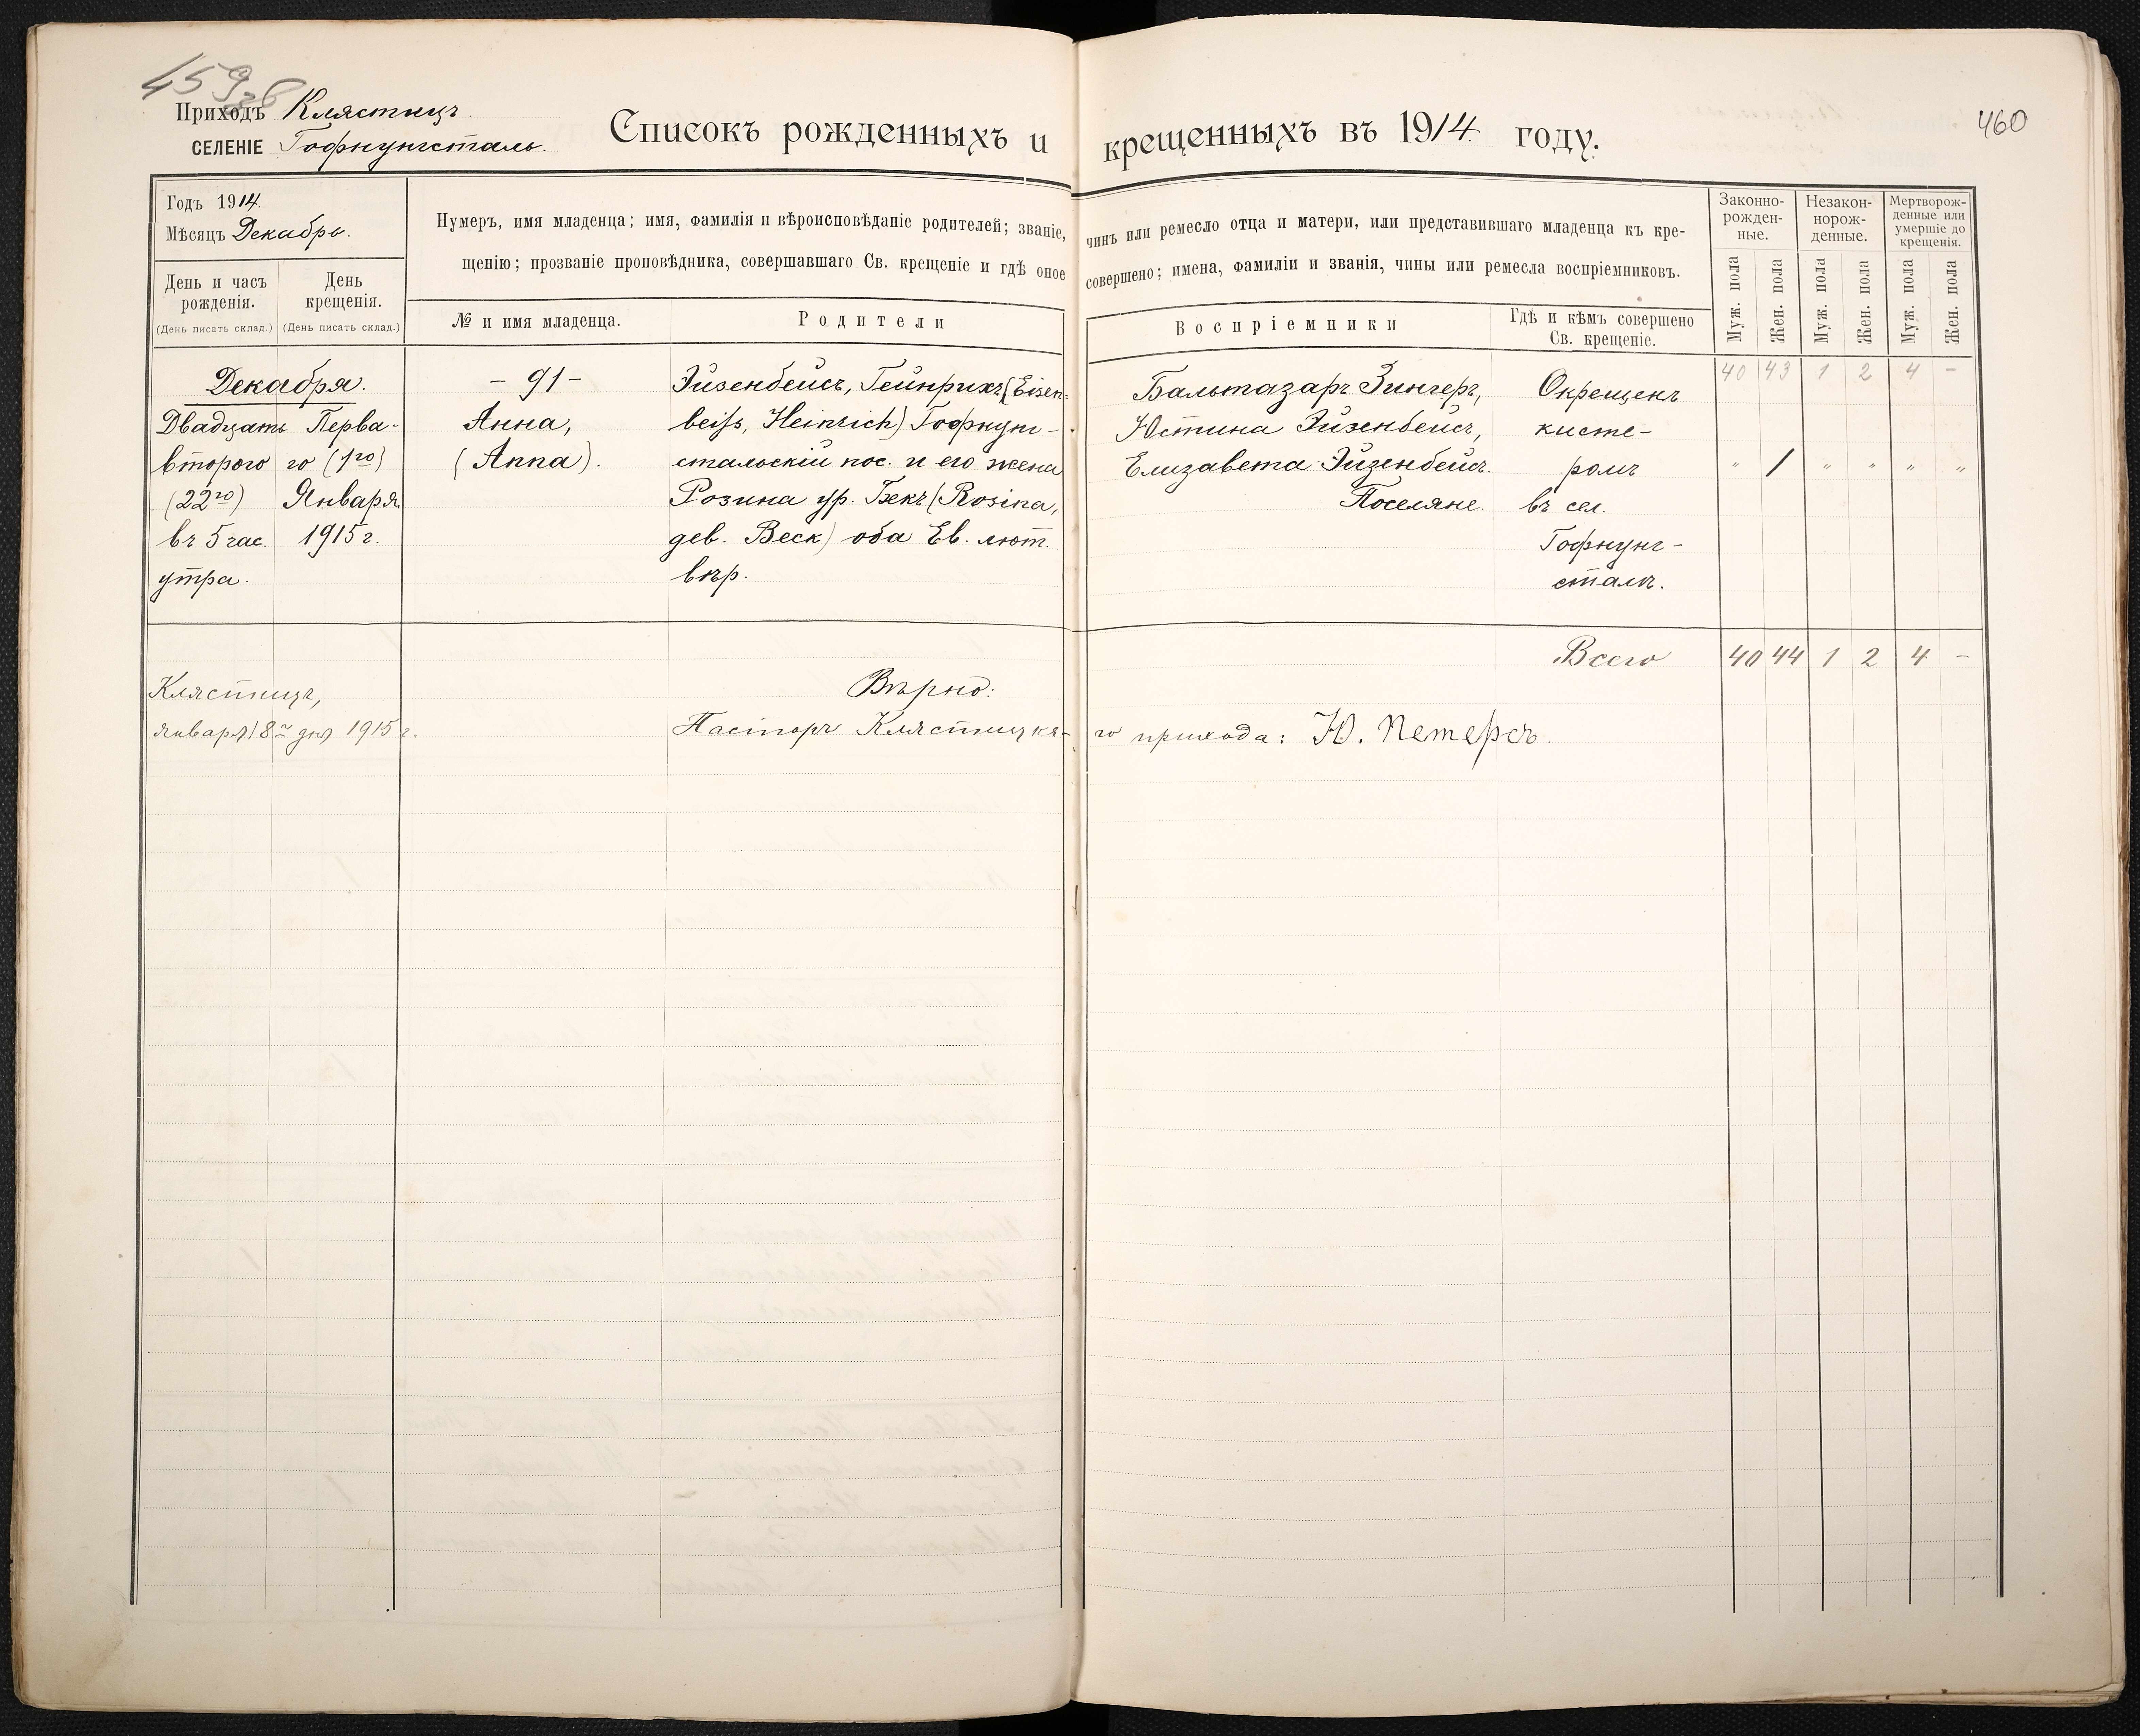 459 460
Приходъ Клястицъ.
СЕЛЕНІЕ Гофнунгсталь.
Списокъ рожденныхъ и крещенныхъ въ 1914 году.
Годъ 1914.
Мѣсяцъ Декабрь.
День и часъ рожденія.
(День писать склад.)
День крещенія.
(День писать склад.)
Нумеръ, имя младенца; имя, фамилія и вѣроисповѣданіе родителей; званіе, чинъ или ремесло отца и матери, или представившаго младенца къ кре-
щенію; прозваніе проповѣдника, совершавшаго Св. крещеніе и гдѣ оное совершено; имена, фамиліи и званія, чины или ремесла воспріемниковъ.
№ и имя младенца.
Родители
Воспріемники
Гдѣ и кѣмъ совершено
Св. крещеніе.
Законно-
рожден-
ные.
Незакон-
норож-
денные.
Мертворож-
денные или
умершіе до
крещенія.
Муж. пола Жен. пола Муж. пола Жен. пола Муж. пола Жен. пола
40 43 1 2 4 -
Декабря.
Двадцать
второго
(22го)
въ 5 час.
утра.
Перва-
го (1го)
Января
1915 г.
- 91 -
Анна,
(Anna).
Эйзенбейсъ, Гейнрихъ (Eisen-
beiss, Heinrich) Гофнунг-
стальскій пос. и его жена
Розина ур. Бекъ (Rosina,
дев. Beck) оба Ев. лют.
вѣр.
Бальтазаръ Зингеръ,
Юстина Эйзенбейсъ,
Елизавета Эйзенбейсъ.
Поселяне.
Окрещенъ
кисте-
ромъ
въ сел.
Гофнунг-
сталѣ.
" 1 " " " "
Всего 40 44 1 2 4 -
Клястицъ,
января 8го дня 1915 г.
Вѣрно:
Пасторъ Клястицка-го прихода: Ю. Петерсъ.